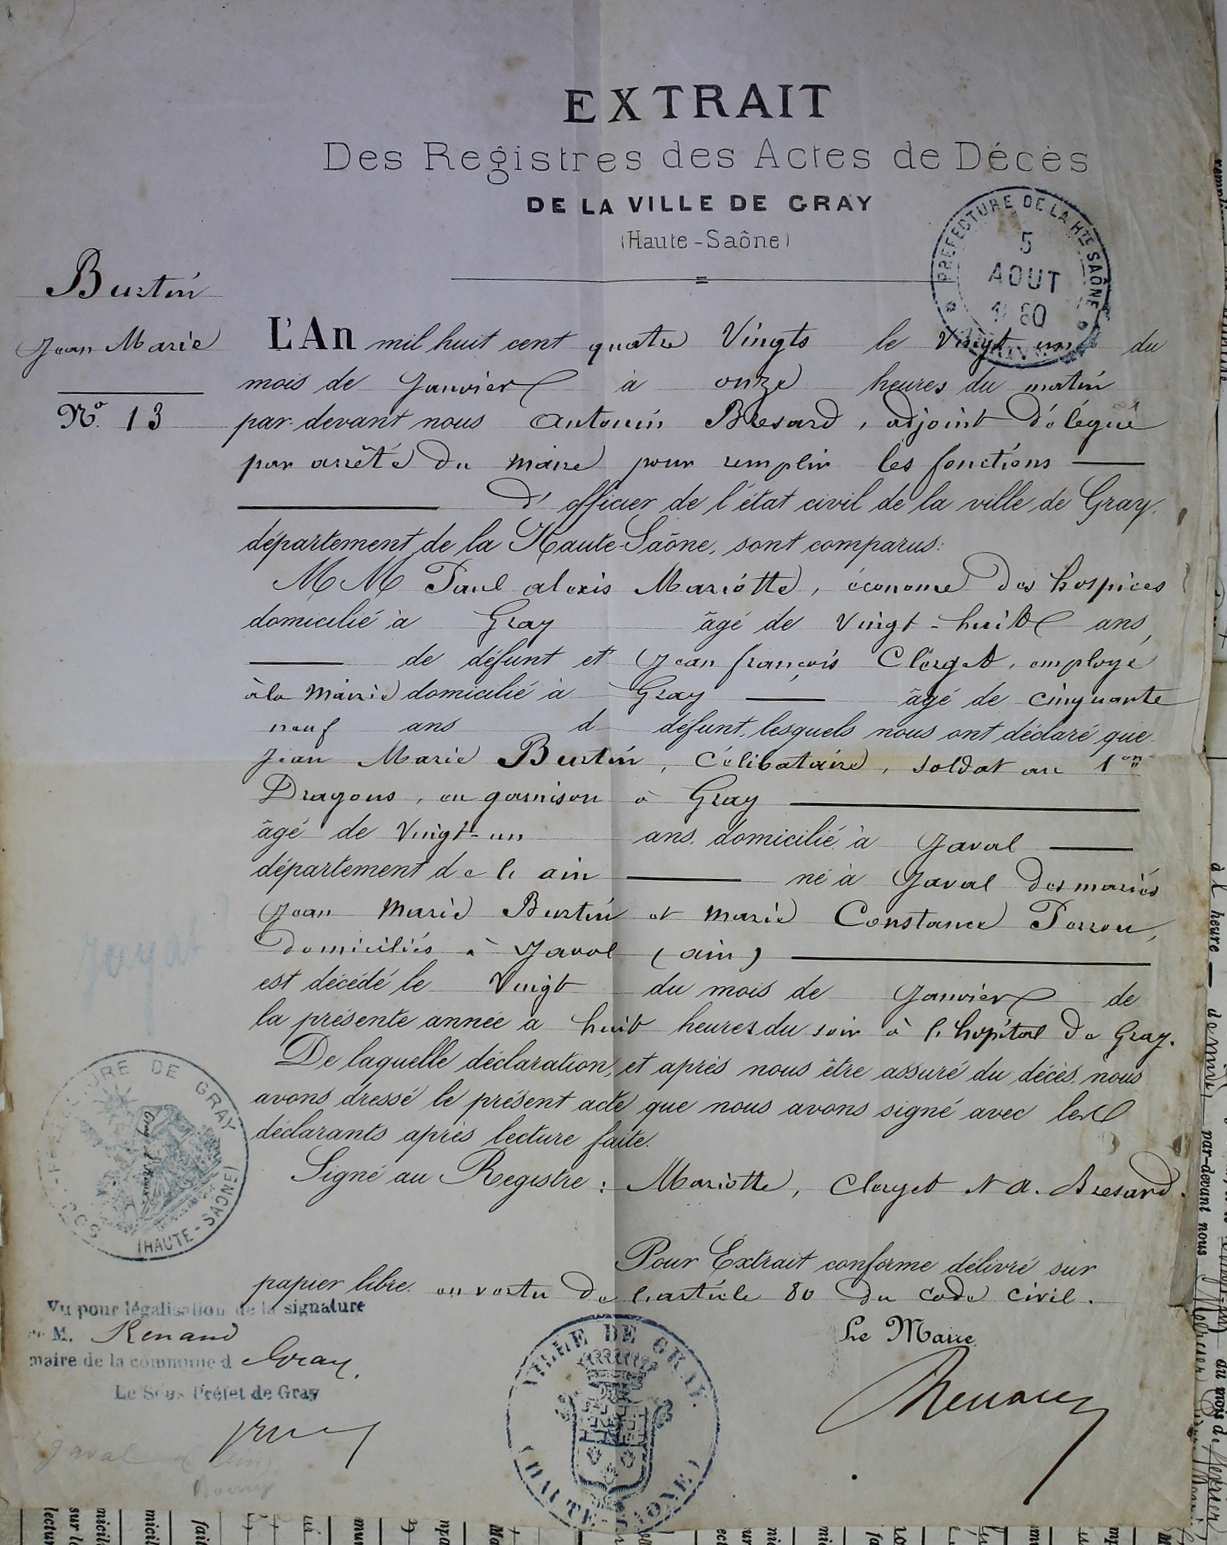 EXTRAIT
Des Registres des Actes de Décès
DE LA VILLE DE GRAY
(Haute-Saône)
PREFECTURE DE LA HTE SAÔNE
5
AOUT
1880
Burtin
Jean Marie
No. 13
L'An mil huit cent quatre Vingts le Vingt un du
mois de Janvier à onze heures du matin
par-devant nous Antonin Bresard, adjoint délégué
par arrêté du maire pour remplir les fonctions
d'officier de l'état civil de la ville de Gray,
département de la Haute-Saône, sont comparus:
MM Paul alexis Mariotte, économe des hospices
domicilié à Gray âgé de Vingt-huit ans,
de défunt et Jean françois Clerget, employé
à la Mairie domicilié à Gray âgé de cinquante
neuf ans d défunt, lesquels nous ont déclaré que
Jean Marie Burtin, Célibataire, soldat au 1er
Dragons, en garnison à Gray
âgé de Vingt-un ans, domicilié à Javal
département de l'ain né à Javal des mariés
Jean Marie Burtin et Marie Constance Perron,
domiciliés à Javal (ain)
est décédé le Vingt du mois de Janvier de
la présente année à huit heures du soir à l'hopital de Gray.
De laquelle déclaration, et après nous être assuré du décès, nous
avons dressé le présent acte que nous avons signé avec les
déclarants après lecture faite.
Signé au Registre: Mariotte, Clerget & A. Bresard.
Pour Extrait conforme délivré sur
papier libre. en vertu de l'article 80 du code civil.
Le Maire
Renaud
Jayat
SOUS-PREFECTURE DE GRAY
(HAUTE-SAÔNE)
Vu pour légalisation de la signature
de M. Renaud
maire de la commune d Gray.
Le Sous Préfet de Gray
VILLE DE GRAY.
(HAUTE-SAÔNE)
Javal
à l heure
par-devant nous
du mois de